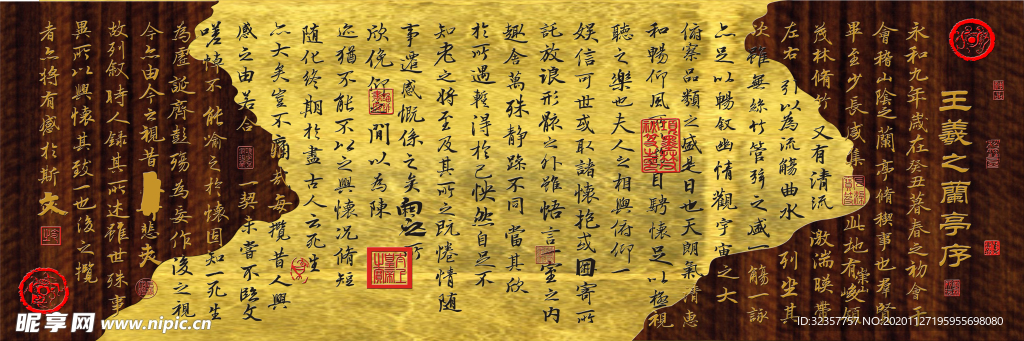 王羲之蘭亭序
永和九年歲在癸丑暮春之初會于
會稽山陰之蘭亭脩稧事也群賢
畢至少長咸集此地有崇峻領
茂林脩竹又有清流激湍暎帶
左右引以為流觴曲水列坐其
次雖無絲竹管弦之盛一觴一詠
亦足以暢叙幽情觀宇宙之大
俯察品類之盛是日也天朗氣清惠
和暢仰風目騁懷足以極視
聽之樂也夫人之相與俯仰一
娱信可世或取諸懷抱或因寄所
託放浪形骸之外雖悟言室之內
趣舍萬殊静躁不同當其欣
於所遇輙得於己怏然自足不
知老之將至及其所之既惓情隨
事遷感慨係之矣向之所
欣俛仰間以為陳
迹猶不能不以之興懷況脩短
隨化終期於盡古人云死生
亦大矣豈不痛哉每攬昔人興
感之由若合一契未嘗不臨文
嗟悼不能喻之於懷固知一死生
為虛誕齊彭殤為妄作後之視
今亦由今之視昔悲夫
故列叙時人錄其所述雖世殊事
異所以興懷其致一也後之攬
者亦將有感於斯文
昵享网 www.nipic.cn
ID:32357757 NO:20201127195955698080